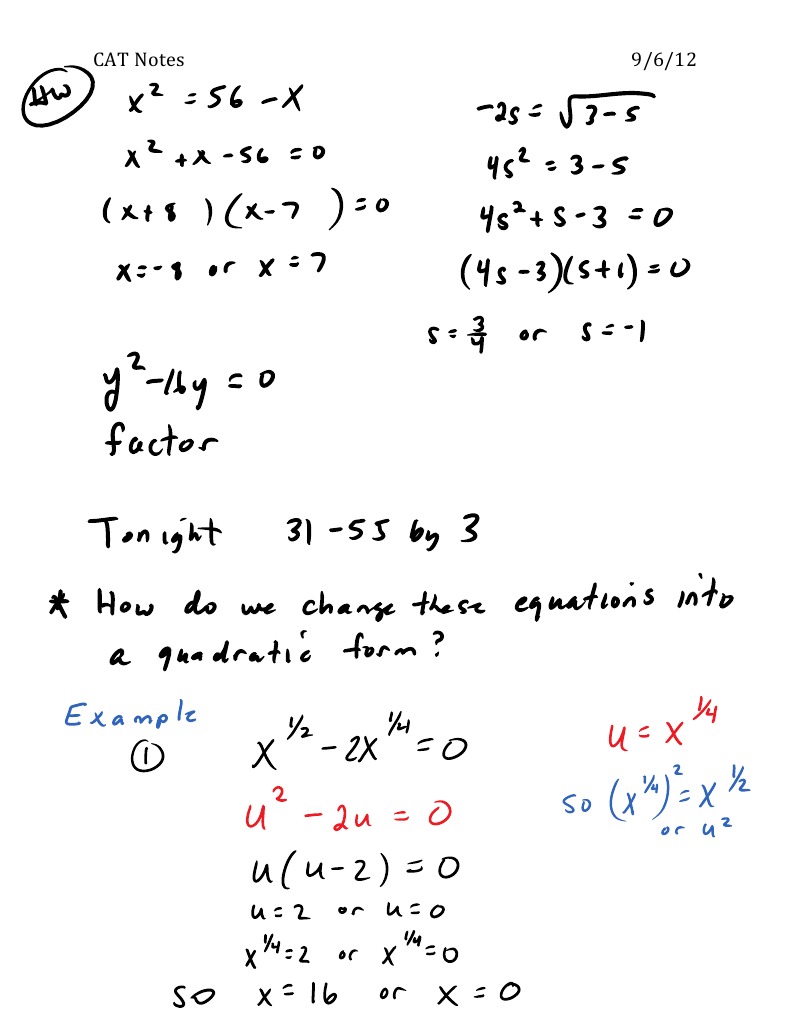 CAT Notes 9/6/12
HW
x² = 56 - x
x² + x - 56 = 0
(x+8 )(x-7 ) = 0
x=-8 or x = 7
-2s = √(3-s)
4s² = 3-s
4s² + s - 3 = 0
(4s-3)(s+1) = 0
s = 3/4 or s = -1
y² - 16y = 0
factor
Tonight 31-55 by 3
* How do we change these equations into
a quadratic form?
Example
① x^1/2 - 2x^1/4 = 0
u = x^1/4
so (x^1/4)² = x^1/2
or u²
u² - 2u = 0
u(u-2) = 0
u = 2 or u = 0
x^1/4 = 2 or x^1/4 = 0
so x = 16 or x = 0